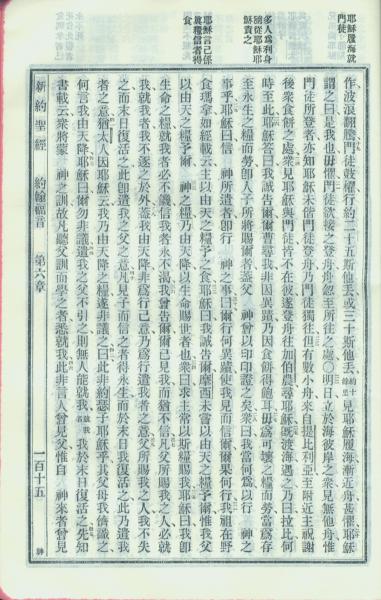 耶穌履海就門徒
多人爲利身隨從耶穌耶穌責之
耶穌言己係眞糧信者得食
作波浪翻騰門徒鼓櫂行約二十五斯他丢或三十斯他丢約十餘里見耶穌履海漸近舟甚懼耶穌
謂之曰是我也毋懼門徒欲接之登舟舟忽至所往之處〇明日立於海彼岸之衆見無他舟惟
門徒所登者亦知耶穌未偕門徒登舟乃門徒獨往但有數小舟來自提比利亞至附近主祝謝
後衆食餅之處衆見耶穌與門徒皆不在彼遂登舟往加伯農尋耶穌旣渡海遇之乃曰拉比何
時至此耶穌答曰我誠告爾爾曹尋我非因異蹟乃因食餅得飽耳毋爲可壞之糧而勞當爲存
至永生之糧而勞卽人子所將賜爾者蓋父 神曾以印印證之矣衆曰我當何爲以行 神之
事乎耶穌曰信 神所遣者卽行 神之事曰爾行何異蹟使我見而信爾爾果何行我祖在野
食瑪拿如經載云主以由天之糧予之食耶穌曰我誠告爾摩西未嘗以由天之糧予爾惟我父
以由天之眞糧予爾 神之糧乃由天降以生命賜世者也衆曰求主常以斯糧賜我耶穌曰我卽
生命之糧就我者必不饑信我者永不渴我曾告爾爾已見我而猶不信凡父所賜我之人必就
我就我者我不逐之於外蓋我由天降非爲行己意乃爲行遣我者之意父所賜我之人我不失
之而末日復活之此卽遣我之父之意凡見子而信之者得永生而於末日我復活之此乃遣我
者之意猶太人因耶穌云我乃由天降之糧遂非議之曰此非約瑟子耶穌乎其父母我儕識之
何言我由天降耶穌曰爾勿非議遣我之父不引之則無人能就我就我者我於末日復活之先知
書載云衆將蒙 神之訓故凡聽父訓而學之者悉就我此非言人曾見父惟自 神來者曾見
新約聖經 約翰福音 第六章 一百十五 神